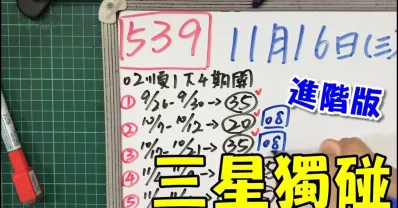 539
11月16日(三)
02順1大4期開
進階版
① 9/26-9/30→35
② 10/7-10/12→20 08
③ 10/17-10/21→35 08
④ 11/
⑤ 11/
三星獨碰